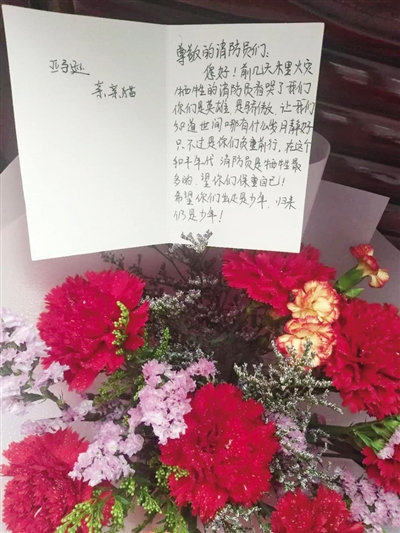 尊敬的消防员们:
您好!前几天木里火灾
牺牲的消防员看哭了我们
你们是英雄,是骄傲,让我们
知道世间哪有什么岁月静好
只不过是你们负重前行,在这个
和平年代,消防员是牺牲最
多的,望你们保重自己!
希望你们出走是少年,归来
仍是少年!